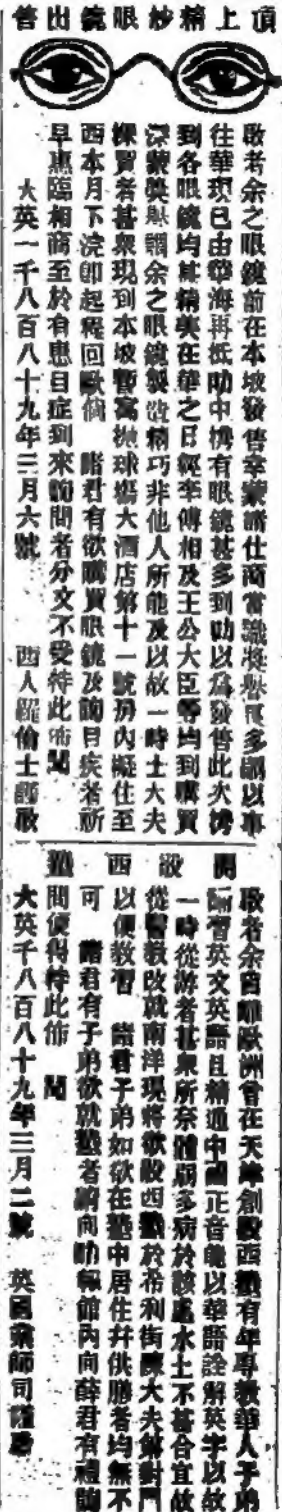 頂上精妙眼鏡出售
敬者余之眼鏡前在本坡發售幸蒙諸仕商嘗識將舉 多 以事
往華現已由 海再抵叻中携有眼鏡甚多到叻以為發售此次携
到各眼鏡均甚精美在華之日經李傅相及王公大臣等均到購買
深蒙獎譽謂余之眼鏡製造精巧非他人所能及以故一時士大夫
採買者甚眾現到本坡暫寓抛球塲大酒店第十一號房內擬住至
西本月下浣即起程回歐倘 諸君有欲購買眼鏡及詢目疾者祈
早惠臨相商至於有患目症到來詢問者分文不受特此佈聞
大英一千八百八十九年三月六號 西人 倫士謹啟
開設西塾
敬者余自離歐洲曾在天津創設西塾有年專教華人子弟
習英文英語且精通中國正音能以華語詮解英字以故
一時從游者甚眾所奈體弱多病於該處水土不甚合宜故
從醫教改就南洋現將欲設西塾於希利街陳大夫 對門
以便教習 諸君子弟如欲在塾中居住并供膳者均無不
可 諸君有子弟欲就塾者請向叻報館內向薛君有禮詢
問便得特此佈 聞
大英千八百八十九年三月二號 英國 師司 啟